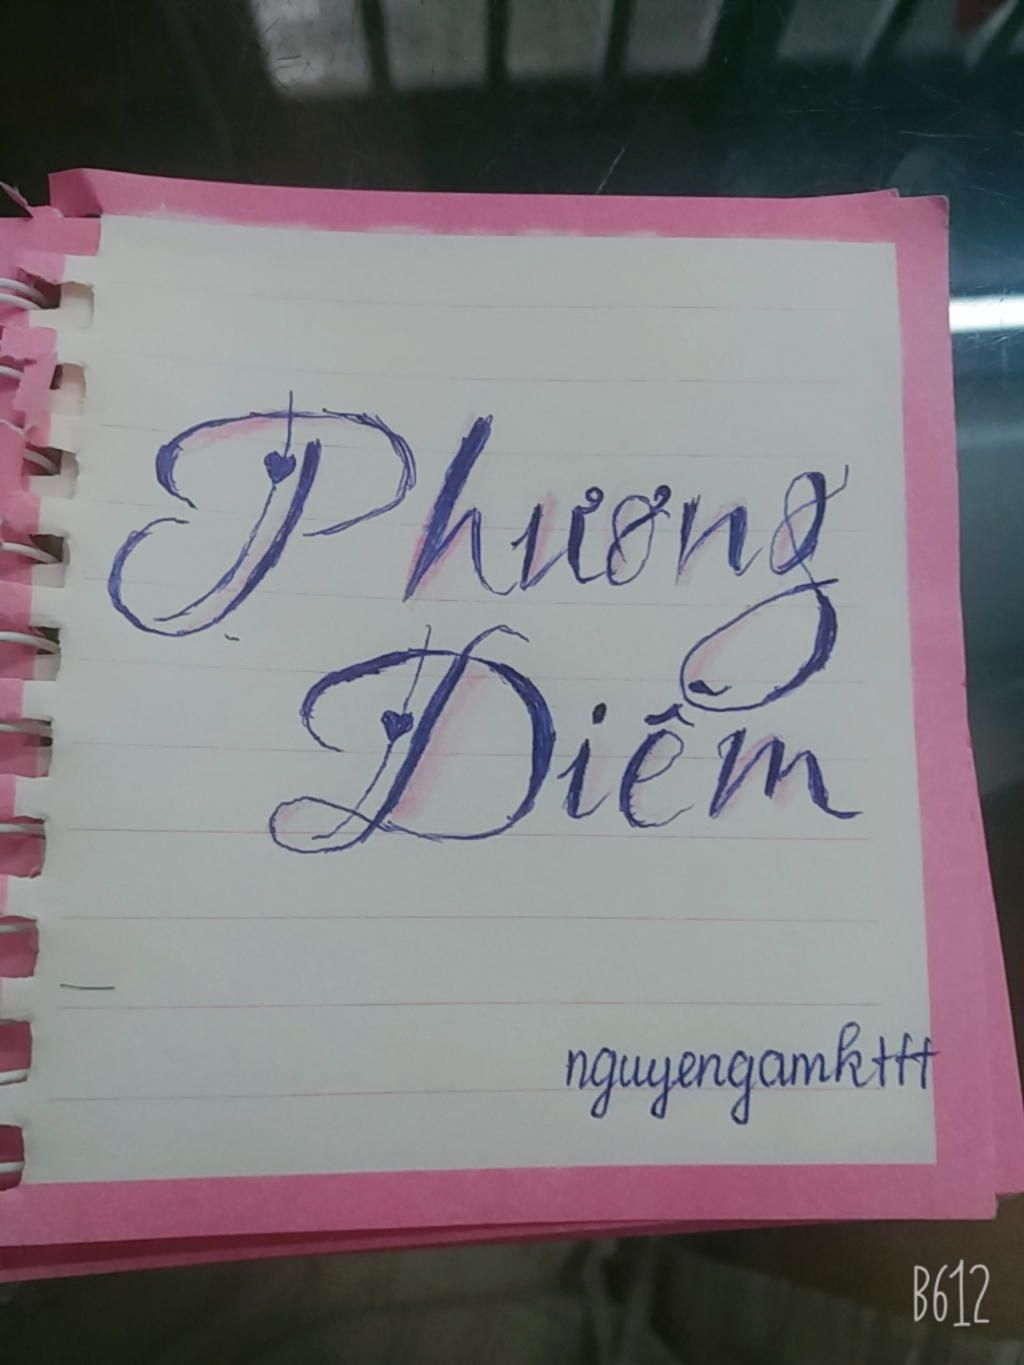 Phương
Diễm
nguyengamkttt
B612